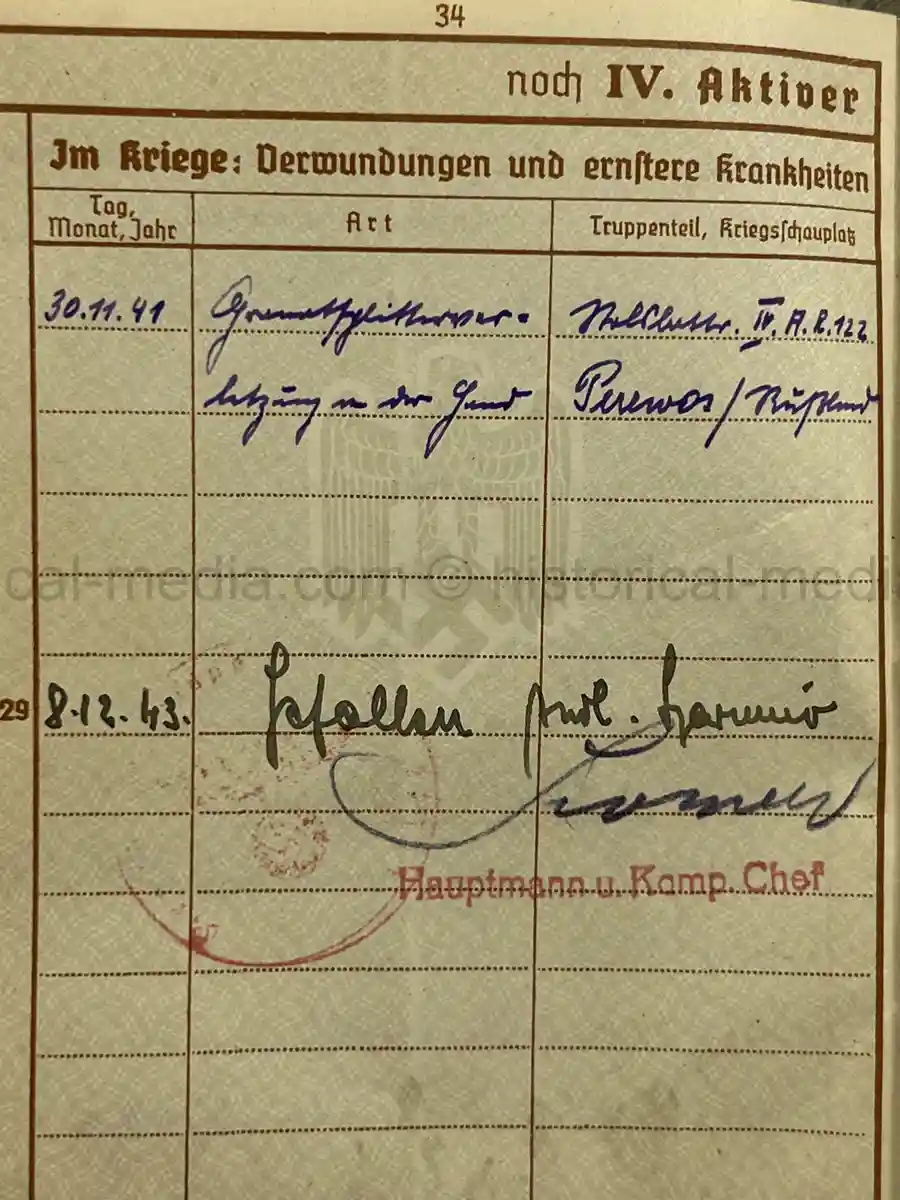 34
noch IV. Aktiver
Im Kriege: Verwundungen und ernstere Krankheiten
Tag, Monat, Jahr
Art
Truppenteil, Kriegsschauplatz
30.11.41 Granatsplitterver- Stabsbattr. IV. A.R.122
letzung an der Hand Perewos / Rußland
cal-media.com © historical-medi
29 8.12.43. Gefallen südl.
Hauptmann u. Komp. Chef